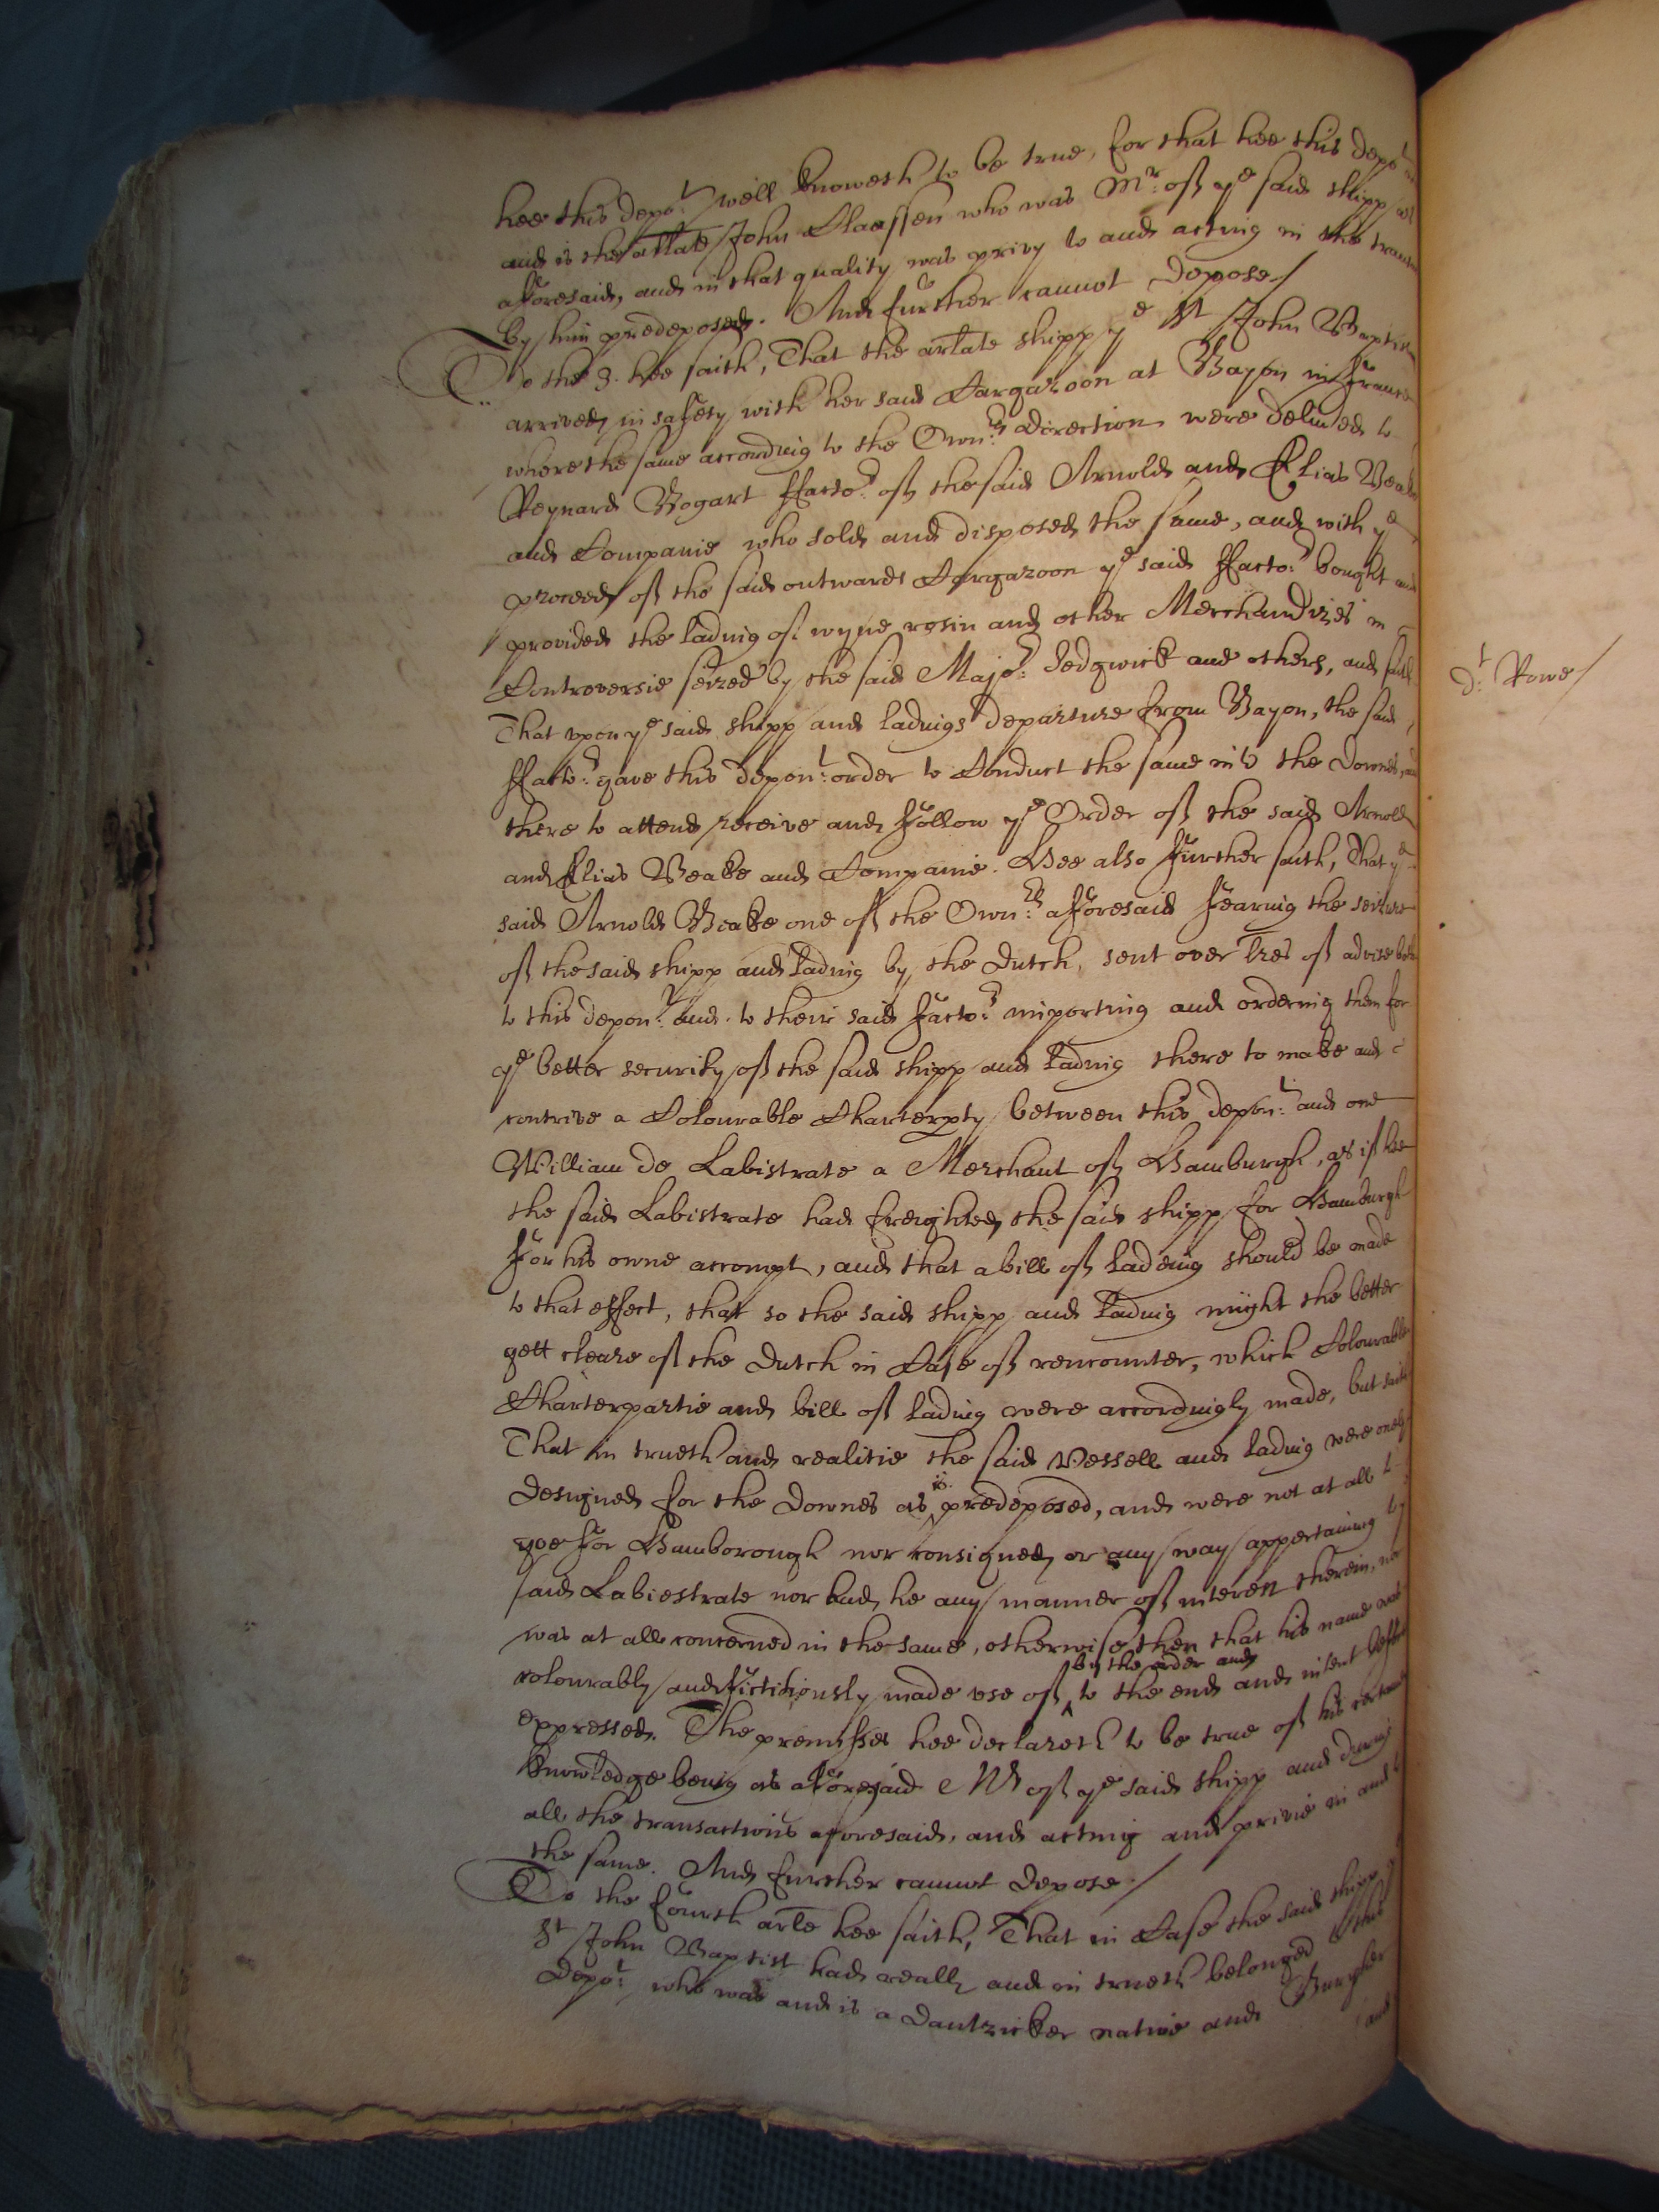 hee this depot well knoweth to be true, for that hee this depot
and is the arlate John Claessen who was Mr: of ye said shipp as
aforesaid, and in that quality was privy to and acting in the
by him predeposed. And further cannot depose/
To the 3. hee saith, That the arlate shipp ye St John Baptist
arrived in safety with her said Cargazoon at Bayon in France
where the same according to the Own:rs direction were deliuered to
Reynard Bogart ffacto:r of the said Arnold and Elias Beake
and Companie who sold and disposed the same, and with ye
proceed of the said outward Cargazoon ye said ffacto:r bought and
provided the lading of wyne rosin and other Merchandizes in
Controversie seized by the said Majo:r Sedgwick and others, and saith
That vpon ye said shipp and ladings departure from Bayon, the said
ffacto:r gave this depon:t order to Conduct the same into the Downes, and
there to attend receive and follow ye Order of the said Arnold
and Elias Beake and Companie. Hee also further saith, That ye
said Arnold Beake one of the Own:rs aforesaid fearing the seizure
of the said shipp and lading by the Dutch, sent over lres of advise both
to this depon:t and to their said facto:r importing and ordering them for
ye better security of the said shipp and lading there to make and
contrive a Colourable Charterpty between this depon:t and one
William de Labistrate a Merchant of Hamburgh, as if hee
the said Labistrate had freighted the said shipp for Hamburgh
for his owne accompt, and that a bill of ladeing should be made
to that effect, that so the said shipp and lading might the better
gett cleare of the Dutch in Case of rencounter, which Colourable
Charterpartie and bill of lading were accordingly made, but saith
That in trueth and realitie the said vessell and lading were onely
designed for the Downes as is predeposed, and were not at all to
goe for Hamborough nor consigned or any way appertaining to
said Labiestrate nor had he any manner of interest therein, nor
was at all concerned in the same, otherwise then that his name was
colourably and fictitiously made vse of by the order and to the end and intent
expressed. The premisses hee declareth to be true of his certaine
knowledge being as aforesaid Mr of ye said shipp and during
all the transactions aforesaid, and acting and privie in and to
the same. And further cannot depose/
To the fourth arle hee saith, That in Case the said shipp
St John Baptist had really and in trueth belonged to this
Depo:t who was and is a Dantzicker native and Burgher
and
d:t Rowe/